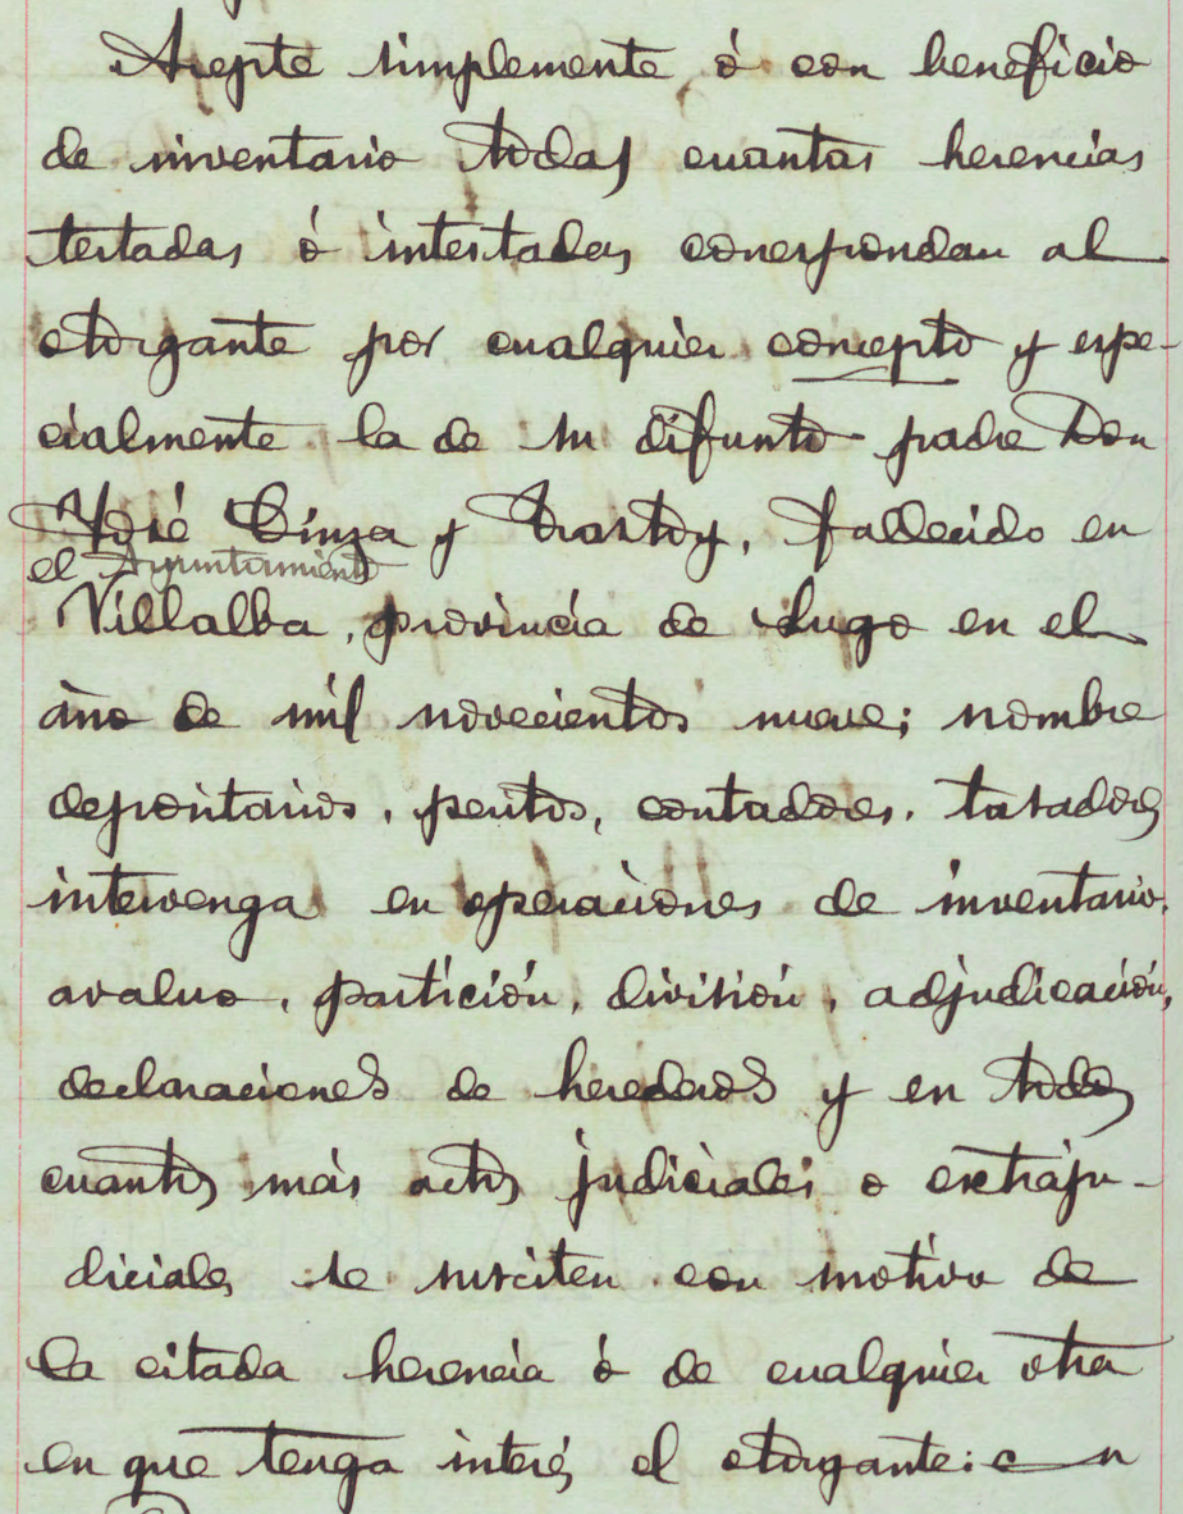 Acepte simplemente ó con beneficio
de inventario todas cuantas herencias
testadas ó intestadas correspondan al
otorgante por cualquier concepto y espe-
cialmente la de su difunto padre Don
José Cinza y Trastoy, fallecido en
el Ayuntamiento
Villalba, provincia de Lugo en el
año de mil novecientos nueve; nombre
depositarios, peritos, contadores, tasadores
intervenga en operaciones de inventario,
avaluo, partición, división, adjudicación,
declaraciones de herederos y en todos
cuantos más actos judiciales o extraju-
diciales se susciten con motivo de
la citada herencia ó de cualquier otra
en que tenga interés el otorgante: en